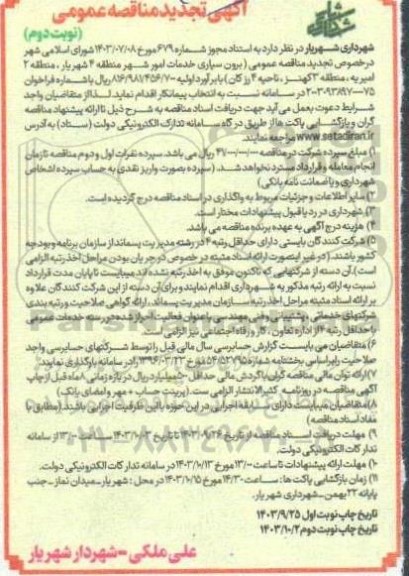 آگهی تجدید مناقصه عمومی
(نوبت دوم)
شهرداری شهریار در نظر دارد به استناد مجوز شماره ۶۷۹ مورخ ۱۴۰۳/۰۷/۰۸ شورای اسلامی شهر
درخصوص تجدید مناقصه عمومی (برون سپاری خدمات امور شهر منطقه ۴ شهریار، منطقه ۲
امیریه، منطقه ۳ کهنز، ناحیه ۴ رزکان) با برآورد اولیه ریال با شماره فراخوان
در سامانه نسبت به انتخاب پیمانکار اقدام نماید. لذا از متقاضیان واجد
شرایط دعوت بعمل می آید جهت دریافت اسناد مناقصه به شرح ذیل تا ارائه پیشنهاد مناقصه
گران و بازگشایی پاکت ها از طریق درگاه سامانه تدارک الکترونیکی دولت (ستاد) به آدرس
www.setadiran.ir مراجعه نمایند.
۱) مبلغ سپرده شرکت در مناقصه ریال می باشد. سپرده نفرات اول و دوم مناقصه تا زمان
انجام معامله و قرارداد مسترد نخواهد شد. (سپرده بصورت واریز نقدی به حساب سپرده اشخاص
شهرداری و یا ضمانت نامه بانکی)
۲) سایر اطلاعات و جزئیات مربوط به واگذاری در اسناد مناقصه درج گردیده است.
۳) شهرداری در رد یا قبول پیشنهادات مختار است.
۴) هزینه درج آگهی به عهده برنده مناقصه می باشد.
۵) شرکت کنندگان بایستی دارای حداقل رتبه ۴ در رشته مدیریت پسماند از سازمان برنامه و بودجه
کشور باشند. (در غیر اینصورت ارائه اسناد مثبته در خصوص در جریان بودن مراحل اخذ رتبه الزامی
است). آن دسته از شرکتهایی که تاکنون موفق به اخذ رتبه نشده اند میبایست تا پایان مدت قرارداد
نسبت به ارائه رتبه مذکور به شهرداری اقدام نمایند و برای آن دسته از این شرکت کنندگان علاوه
بر ارائه اسناد مثبته مراحل اخذ رتبه سازمان مدیریت پسماند، ارائه گواهی صلاحیت و رتبه بندی
شرکتهای خدماتی، پشتیبانی و فنی مهندسی با عنوان فعالیت احراز شده در رسته خدمات عمومی
با حداقل رتبه ۴ از اداره تعاون، کار و رفاه اجتماعی نیز الزامی
۶) متقاضیان می بایست گزارش حسابرسی سال مالی قبل را توسط شرکتهای حسابرسی واجد
صلاحیت را براساس بخشنامه شماره مورخ در سامانه بارگذاری نمایند.
۷) ارائه توان مالی مناقصه گران با گردش مالی حداقل میلیارد ریال در بازه زمانی ماه قبل از چاپ
آگهی مناقصه در روزنامه کثیرالانتشار الزامی ست. (پرینت حساب + مهر و امضای بانک)
۸) متقاضیان میبایست دارای سابقه اجرایی در این حوزه با این ظرفیت اجرایی باشند. (مطابق با
مفاد اسناد مناقصه)
۹) مهلت دریافت اسناد مناقصه از تاریخ ۱۴۰۳/۰۹/۲۶ تا تاریخ ۱۴۰۳/۱۰/۰۳ ساعت ۱۳:۰۰ از سامانه
تدارکات الکترونیکی دولت.
۱۰) مهلت ارائه پیشنهادات تا ساعت ۱۳:۰۰ مورخ ۱۴۰۳/۱۰/۱۳ در سامانه تدارکات الکترونیکی دولت.
۱۱) زمان بازگشایی پاکت ها: ساعت ۱۴:۳۰ مورخ ۱۴۰۳/۱۰/۱۵ در محل: شهریار - میدان نماز - جنب
پایانه ۲۲ بهمن - شهرداری شهریار.
تاریخ چاپ نوبت اول ۱۴۰۳/۹/۲۵
تاریخ چاپ نوبت دوم ۱۴۰۳/۱۰/۲
علی ملکی - شهردار شهریار